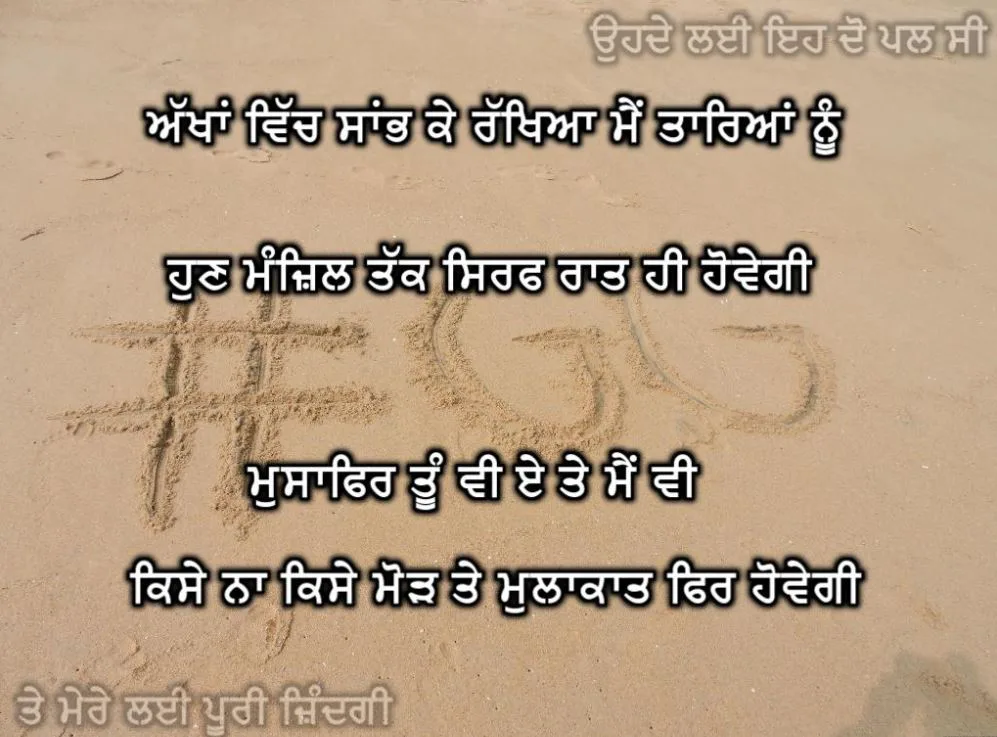 ਉਹਦੇ ਲਈ ਇਹ ਦੋ ਪਲ ਸੀ
ਅੱਖਾਂ ਵਿੱਚ ਸਾਂਭ ਕੇ ਰੱਖਿਆ ਮੈਂ ਤਾਰਿਆਂ ਨੂੰ
ਹੁਣ ਮੰਜ਼ਿਲ ਤੱਕ ਸਿਰਫ ਰਾਤ ਹੀ ਹੋਵੇਗੀ
#GG
ਮੁਸਾਫਿਰ ਤੂੰ ਵੀ ਏ ਤੇ ਮੈਂ ਵੀ
ਕਿਸੇ ਨਾ ਕਿਸੇ ਮੋੜ ਤੇ ਮੁਲਾਕਾਤ ਫਿਰ ਹੋਵੇਗੀ
ਤੇ ਮੇਰੇ ਲਈ ਪੂਰੀ ਜ਼ਿੰਦਗੀ